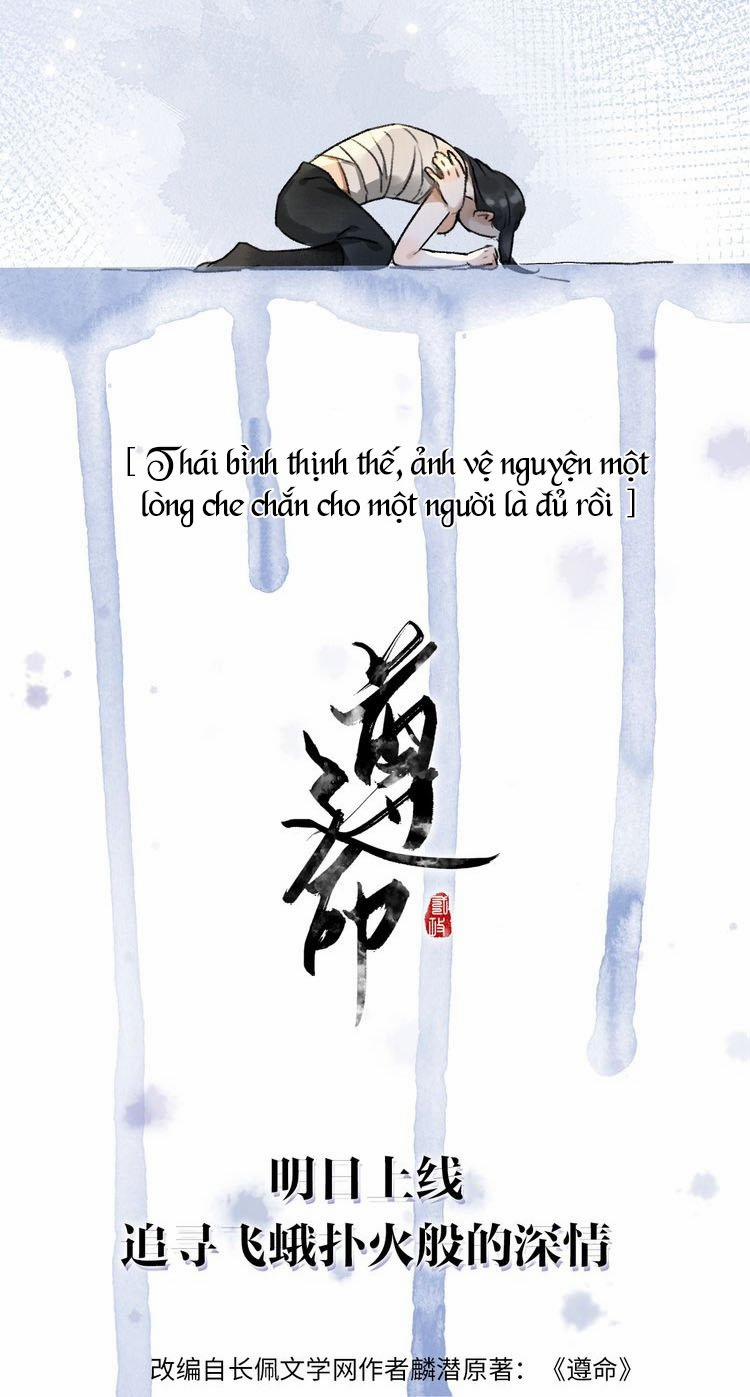 [ Thái bình thịnh thế, ảnh vệ nguyện một
lòng che chắn cho một người là đủ rồi ]
遵命
明日上线
追寻飞蛾扑火般的深情
改编自长佩文学网作者麟潜原著：《遵命》